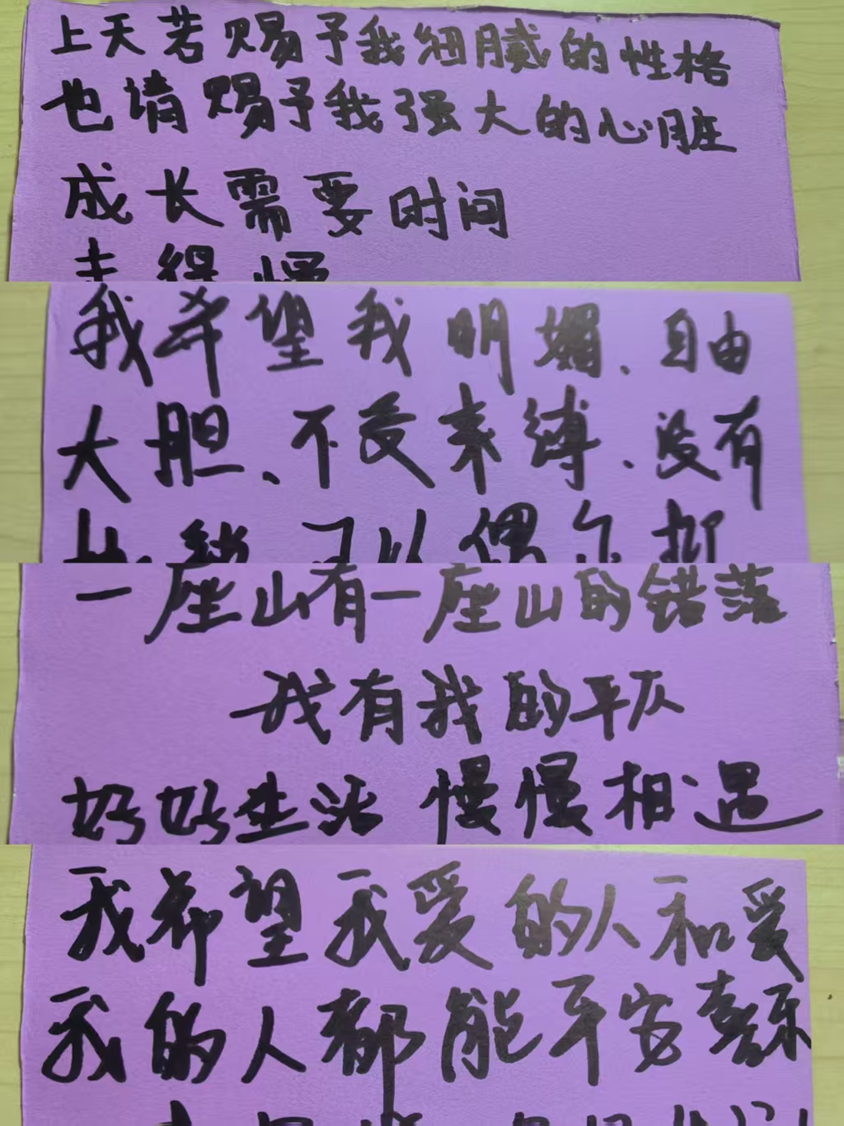 上天若赐予我细腻的性格
也请赐予我强大的心脏
成长需要时间
我希望我明媚、自由
大胆、不受束缚、没有
一座山有一座山的错落
我有我的平仄
好好生活 慢慢相遇
我希望我爱的人和爱
我的人都能平安喜乐